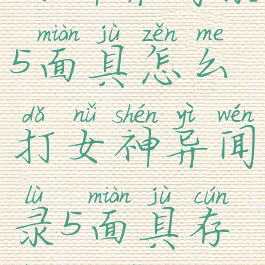 miàn jù zěn me
5面具怎么
dǎ nǚ shén yì wén
打女神异闻
lù miàn jù cún
录5面具存